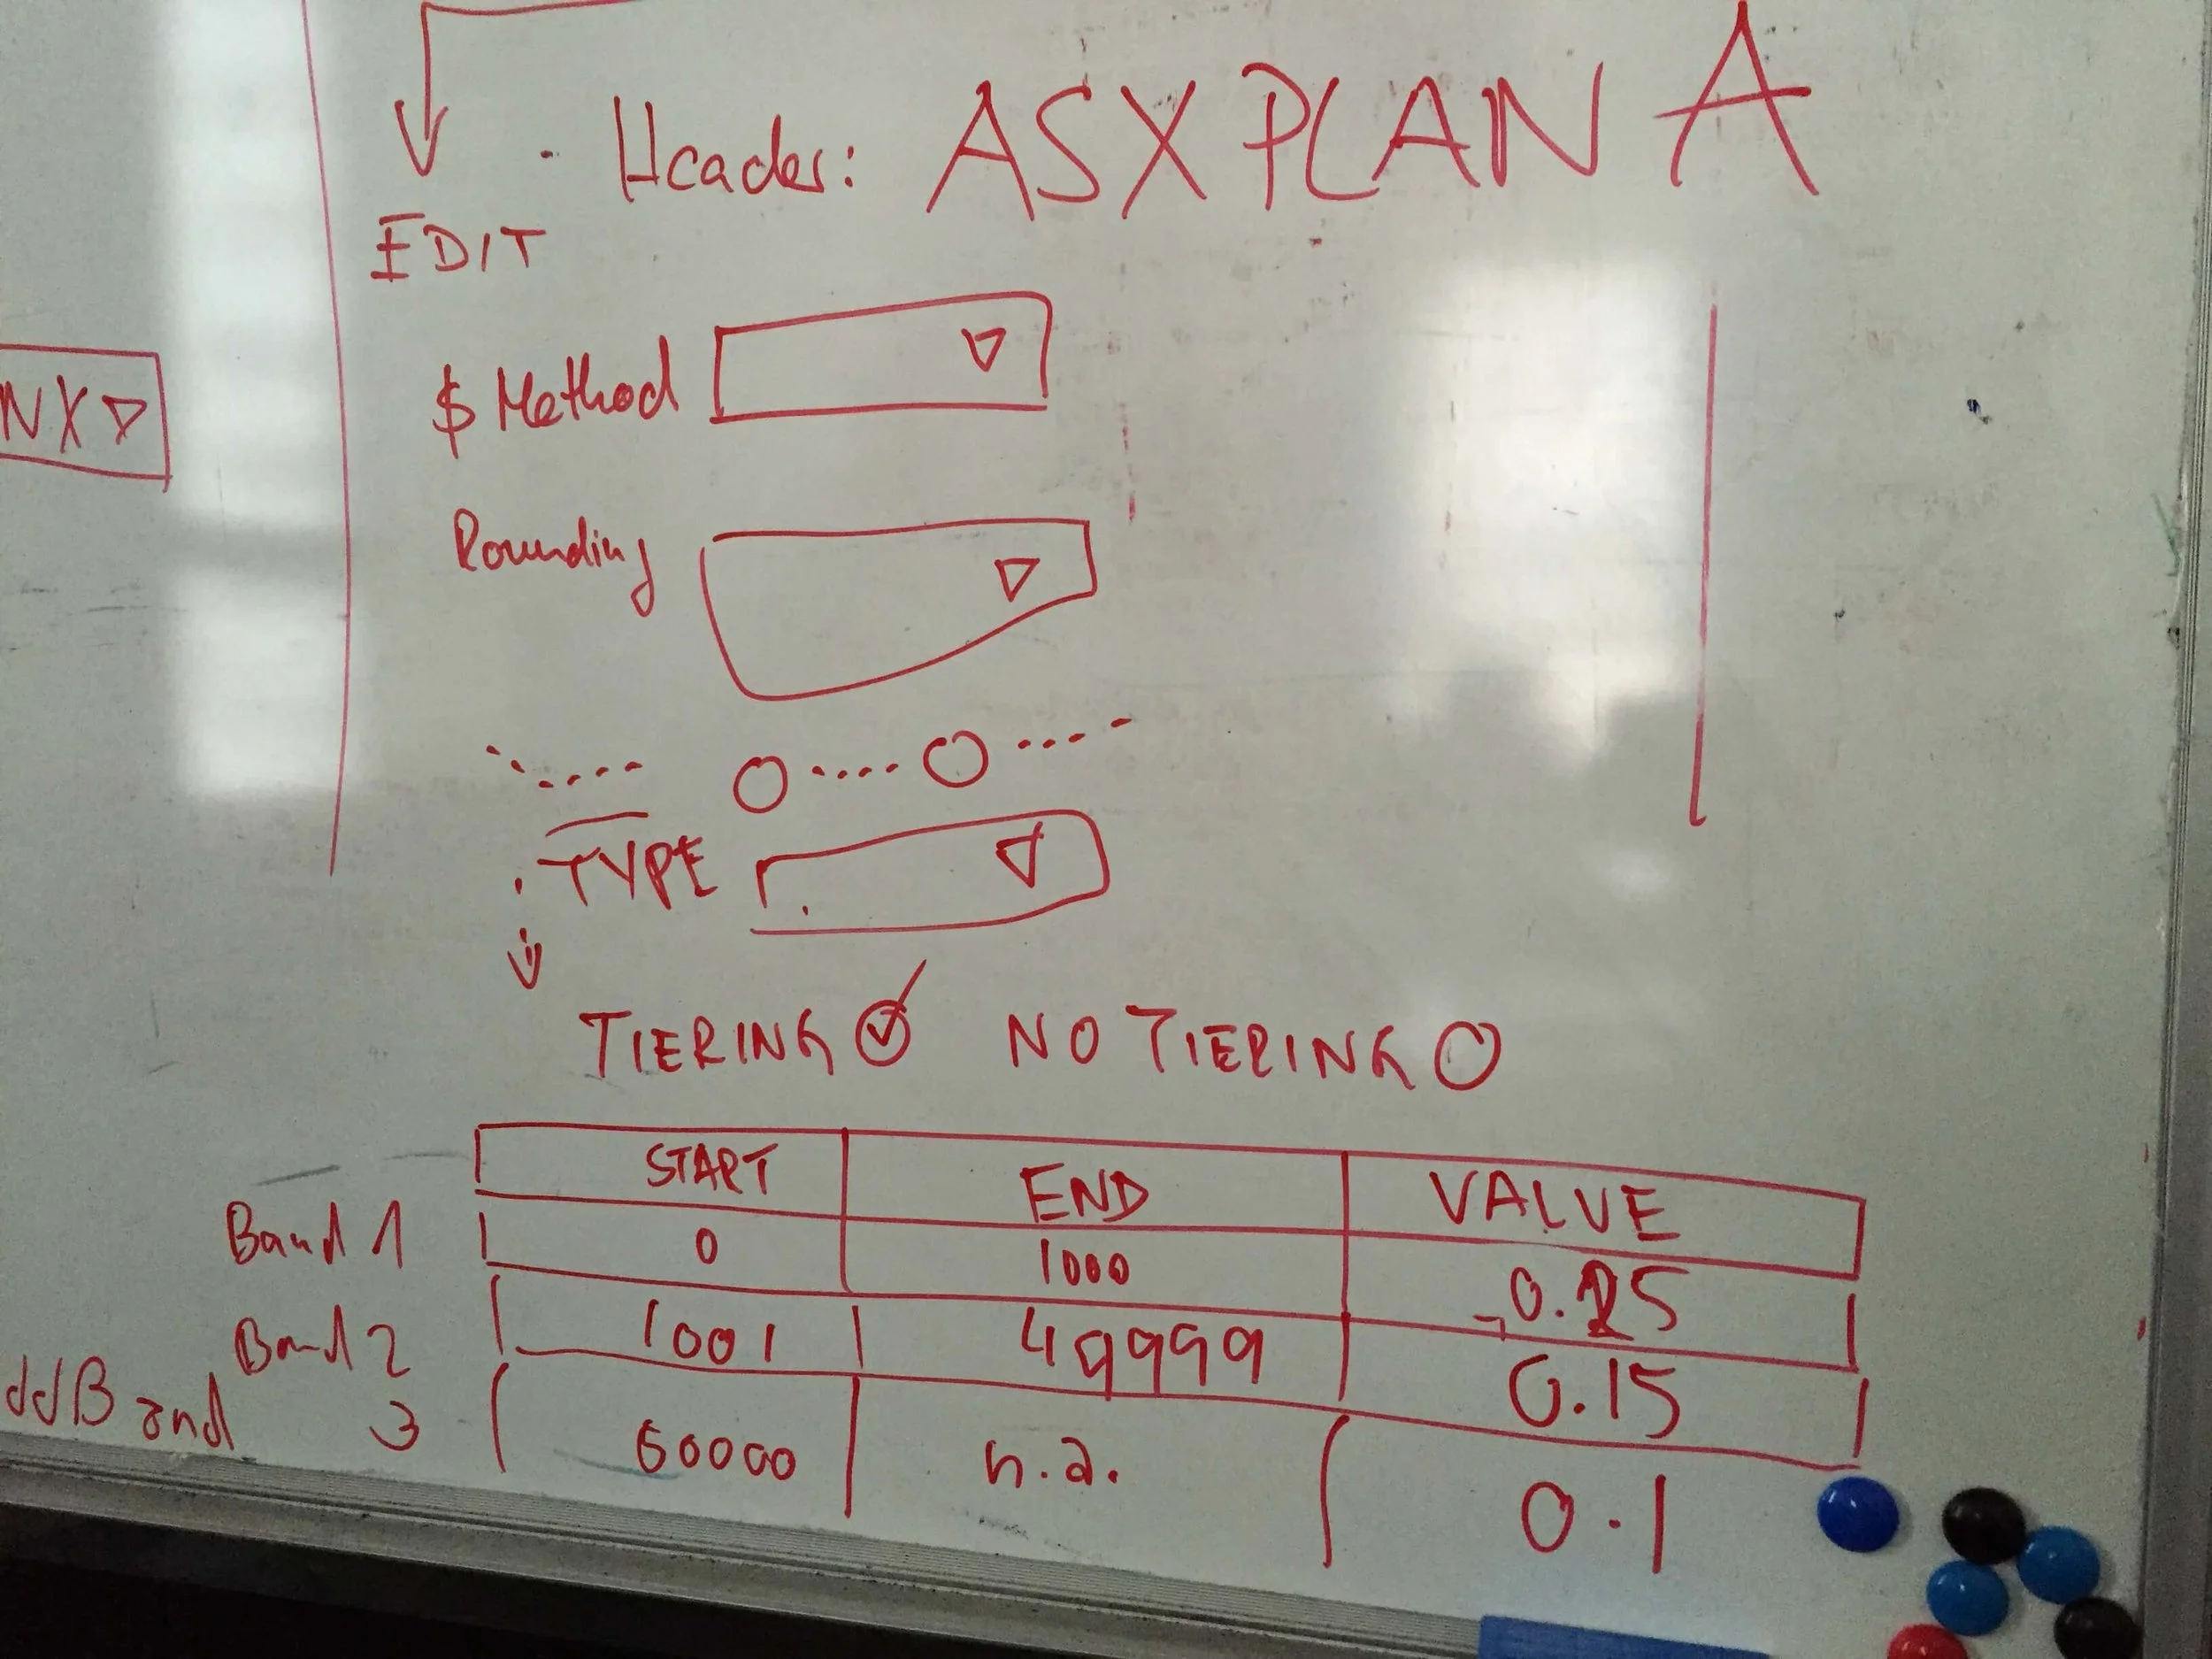 - Header: ASX PLAN A
EDIT
NX
$ Method
Rounding
TYPE
TIERING NO TIERING
START END VALUE
Band 1 0 1000 0.25
Band 2 1001 49999 0.15
ddBand 3 60000 n.a. 0.1